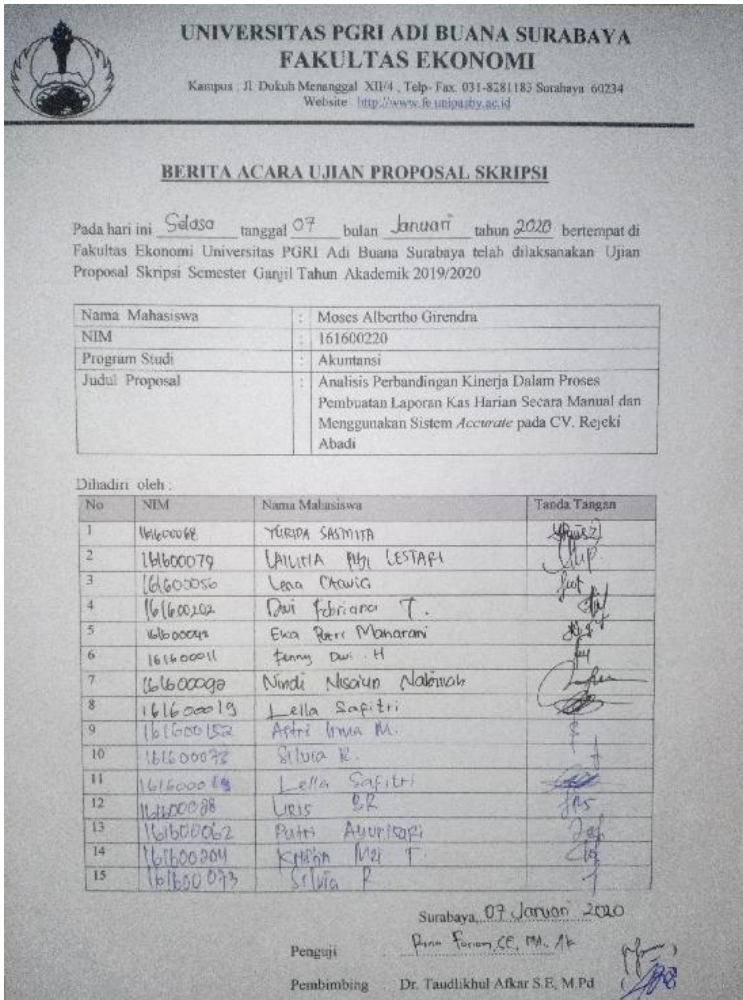 UNIVERSITAS PGRI ADI BUANA SURABAYA
FAKULTAS EKONOMI
Kampus : Jl. Dukuh Menanggal XII/4 , Telp- Fax. 031-8281183 Surabaya 60234
Website : http://www.fe.unipasby.ac.id
BERITA ACARA UJIAN PROPOSAL SKRIPSI
Pada hari ini Selasa tanggal 07 bulan Januari tahun 2020 bertempat di
Fakultas Ekonomi Universitas PGRI Adi Buana Surabaya telah dilaksanakan Ujian
Proposal Skripsi Semester Ganjil Tahun Akademik 2019/2020
Nama Mahasiswa : Moses Albertho Girendra
NIM : 161600220
Program Studi : Akuntansi
Judul Proposal : Analisis Perbandingan Kinerja Dalam Proses
Pembuatan Laporan Kas Harian Secara Manual dan
Menggunakan Sistem Accurate pada CV. Rejeki
Abadi
Dihadiri oleh :
No NIM Nama Mahasiswa Tanda Tangan
1 161600068 YURIDA SASMITA
2 161600079 LAILITIA LESTARI
3 161600056 Lena
4 161600202 Dwi Febriana T.
5 Eka Putri Maharani
6 161600011 Fenny Dwi . H
7 Nindi Nisa'un
8 161600019 Lella Safitri
9 161600152 Astri Irma M.
10 Silvia R.
11 Lella Safitri
12 SR
13 161600062 Putri
14 161600204 T.
15 161600073 Silvia R
Surabaya, 07 Januari 2020
Penguji
Pembimbing Dr. Taudlikhul Afkar S.E, M.Pd